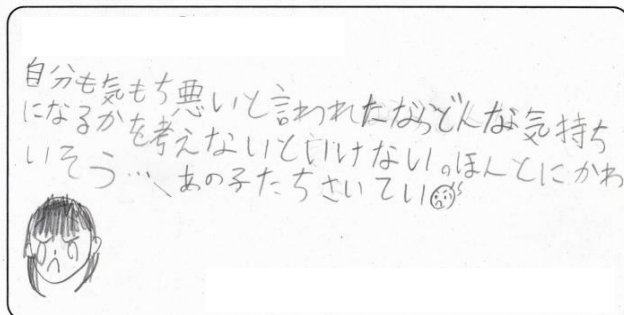 自分も気もち悪いと言われたならどんな気持ち
になるかを考えないといけない。ほんとにかわ
いそう…、あの子たちさいてい